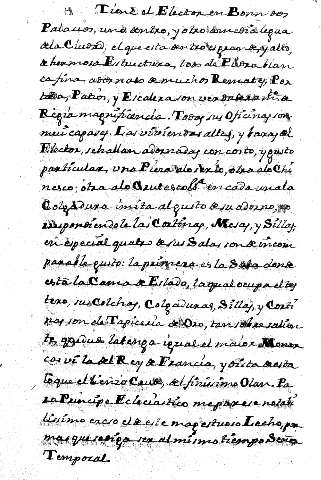 Tiene el Elector en Bonn dos
Palacios, uno dentro, y otro à media legua
de la Ciudad, el que esta dentro es grande, y alto,
de hermosa Estructura, toda de Piedra blan
ca fina, adornado de muchos Remates; Por
tada, Patios, y Escalera son verdaderamte. de
Regia magnificencia. Todas sus Oficinas son
mui capases. Las viviendas altas, y baxas del
Elector, se hallan adornadas con corto, y gusto
particular, una Pieza à lo
nesco; otra a lo en cada una la
Colgadura imita al gusto de su adorno,
respondiendole las Cortinas, Mesas, y Sillas,
en especial quatro de sus Salas son de incom
parable gusto: la primera es la Sala donde
està la Cama de Estado, la qual ocupa el tes
tero, sus Colchas, Colgaduras, Sillas, y Corti
nas son de Tapiceria de Oro, tan sobresalien
te que la tenga igual el maior Monar
ca vi la del Rey de Francia, y vista de esta
lo que el Lienzo del finissimo Olan. Pa
ra Principe Eclesiastico me parese notabi
lissimo exceso el de este magestuoso Lecho, por
mas que se diga ser al mismo tiempo Señor
Temporal.